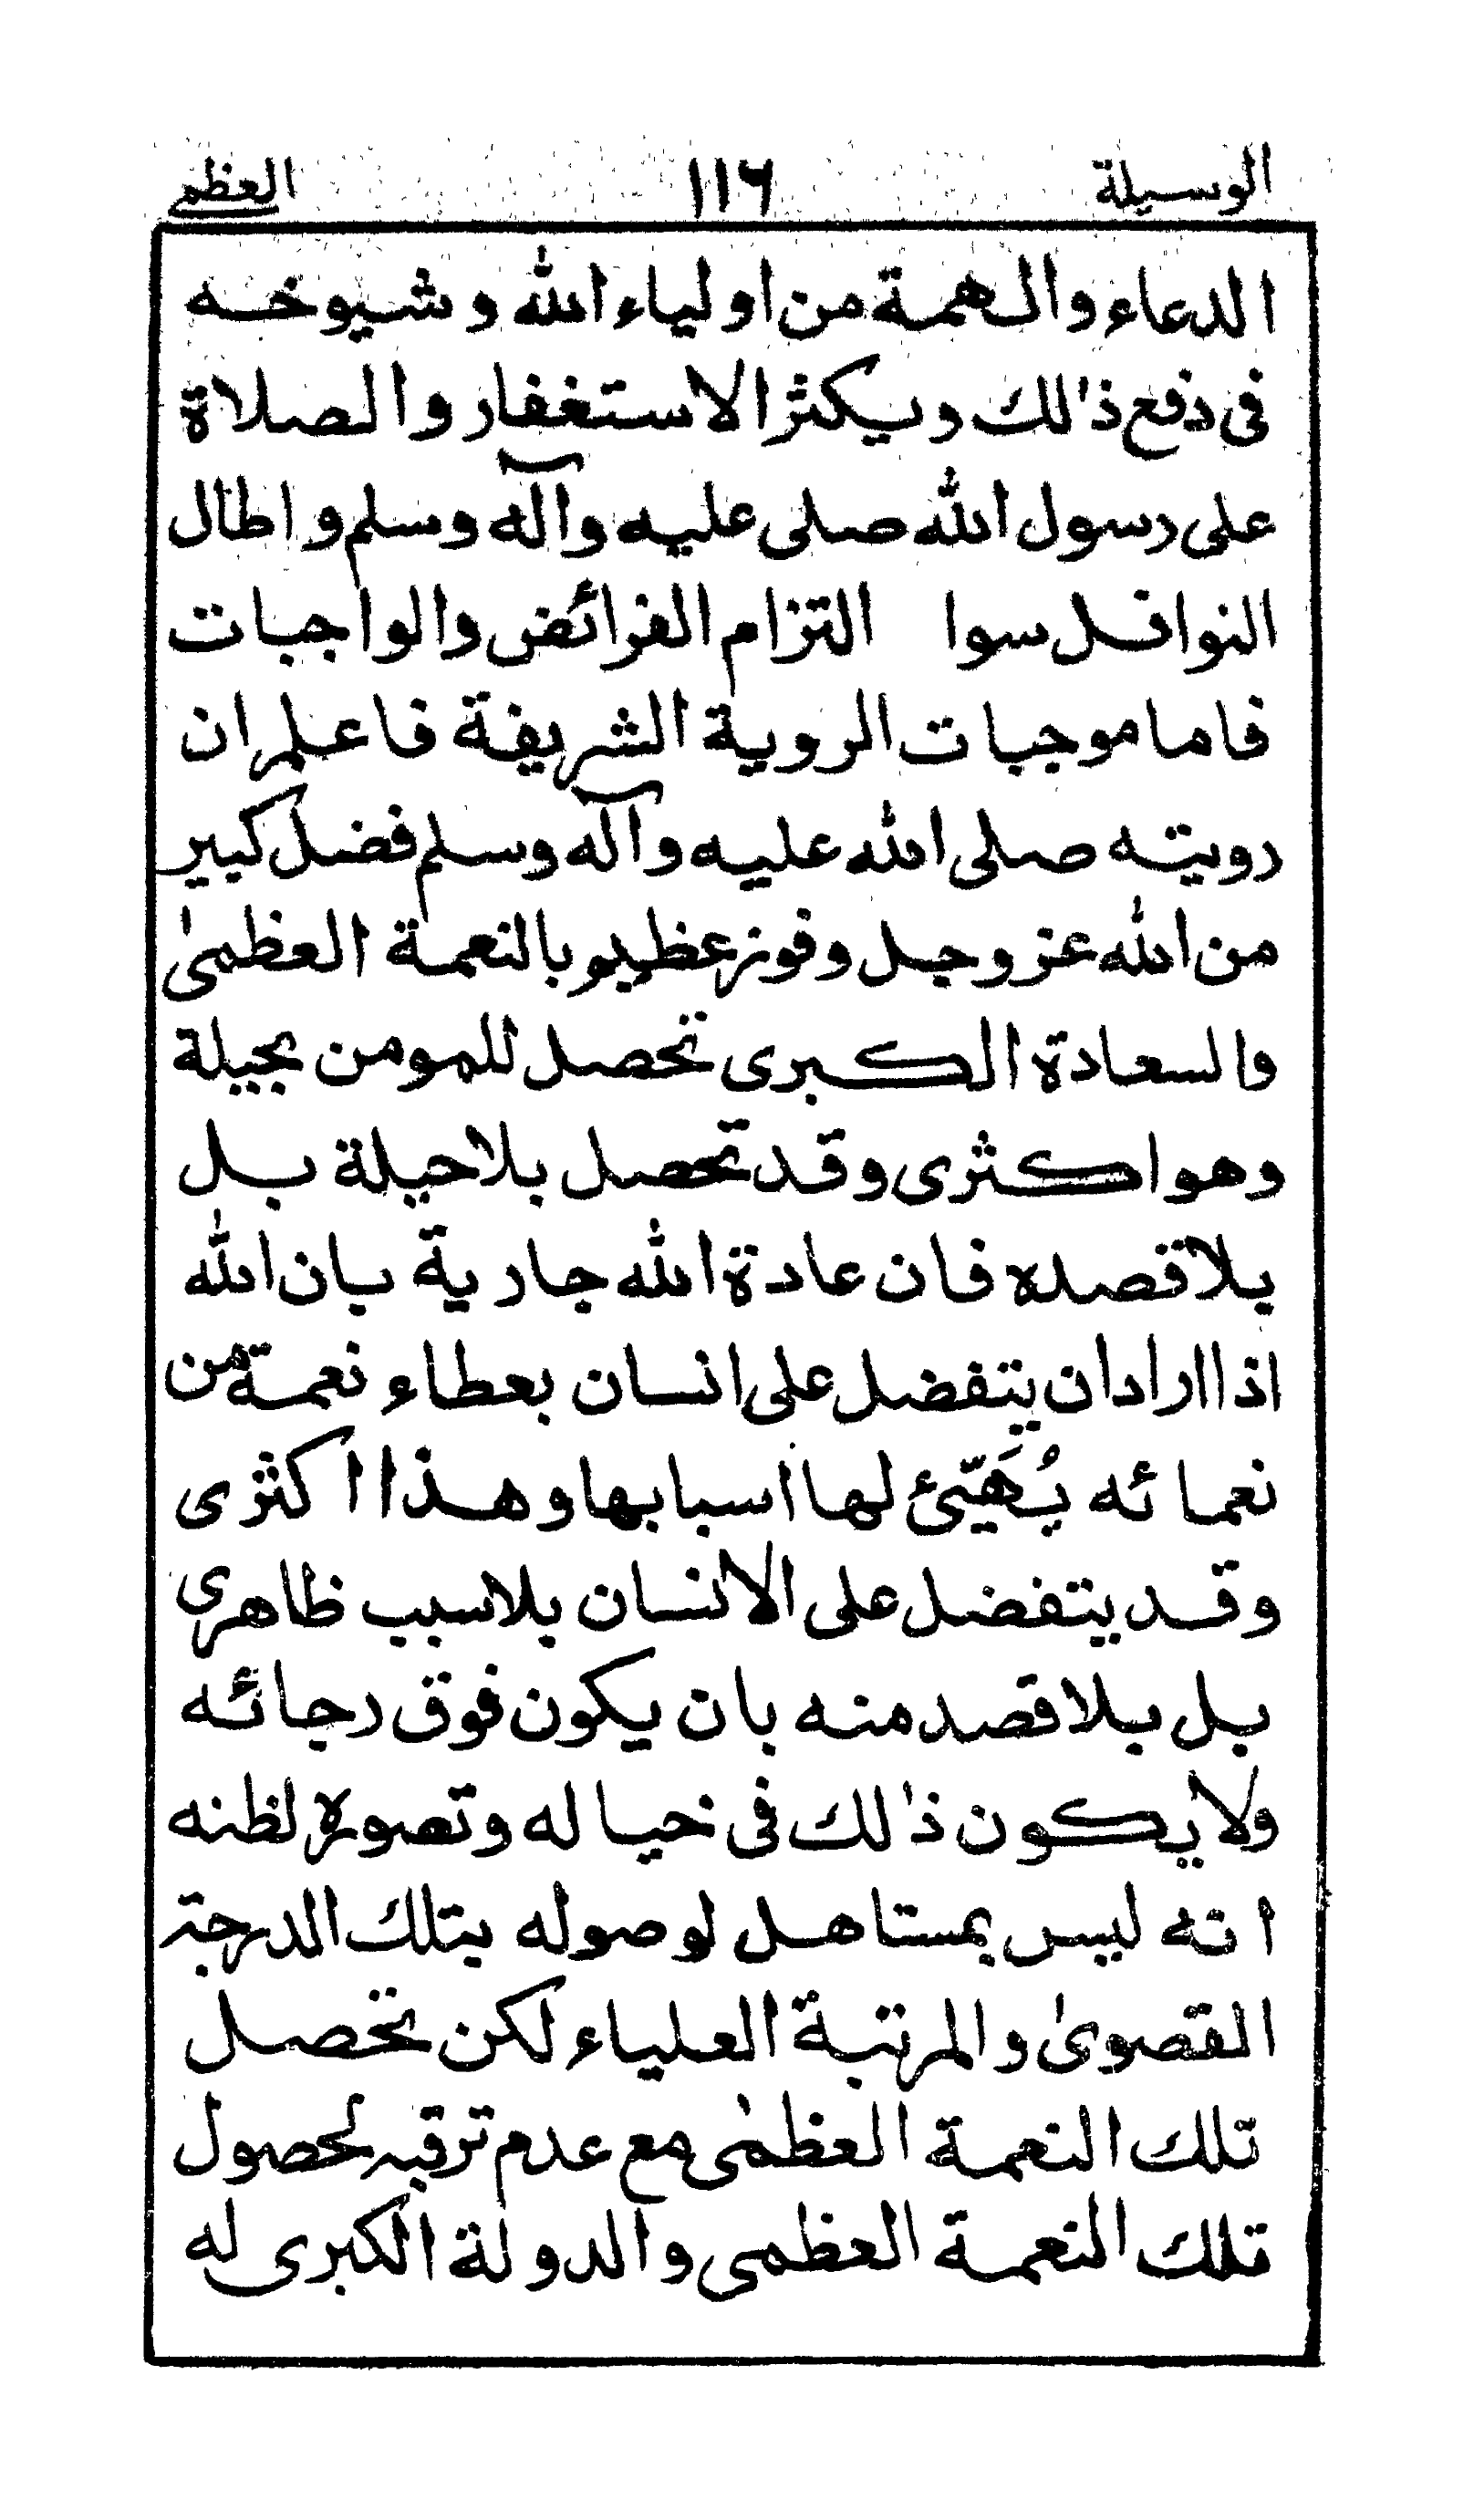 الوسيلة ١١٦ العظمى
الدعاء والهمة من اولياء الله وشيوخه
فى دفع ذالك ويكثر الاستغفار والصلاة
على رسول الله صلى عليه وآله وسلم واطال
النوافل سوا التزام الفرائض والواجبات
فاما موجبات الروية الشريفة فاعلم ان
رويته صلى الله عليه وآله وسلم فضل كبير
من الله عز وجل وفوز عظيم بالنعمة العظمىٰ
والسعادة الكبرى تحصل للمومن بحيلة
وهو اكثرى وقد تحصل بلا حيلة بل
بلا قصده فان عادة الله جارية بان الله
اذا اراد ان يتفضل على انسان بعطاء نعمة من
نعمائه يُهَيّئ لها اسبابها وهذا اكثرى
وقد يتفضل على الانسان بلا سبب ظاهرى
بل بلا قصد منه بان يكون فوق رجائه
ولا يكون ذالك فى خياله وتصوره لظنه
انه ليس بمستاهل لوصوله بتلك الدرجة
القصوىٰ والمرتبة العلياء لكن تحصل
تلك النعمة العظمٰى مع عدم ترقبه لحصول
تلك النعمة العظمى والدولة الكبرى له